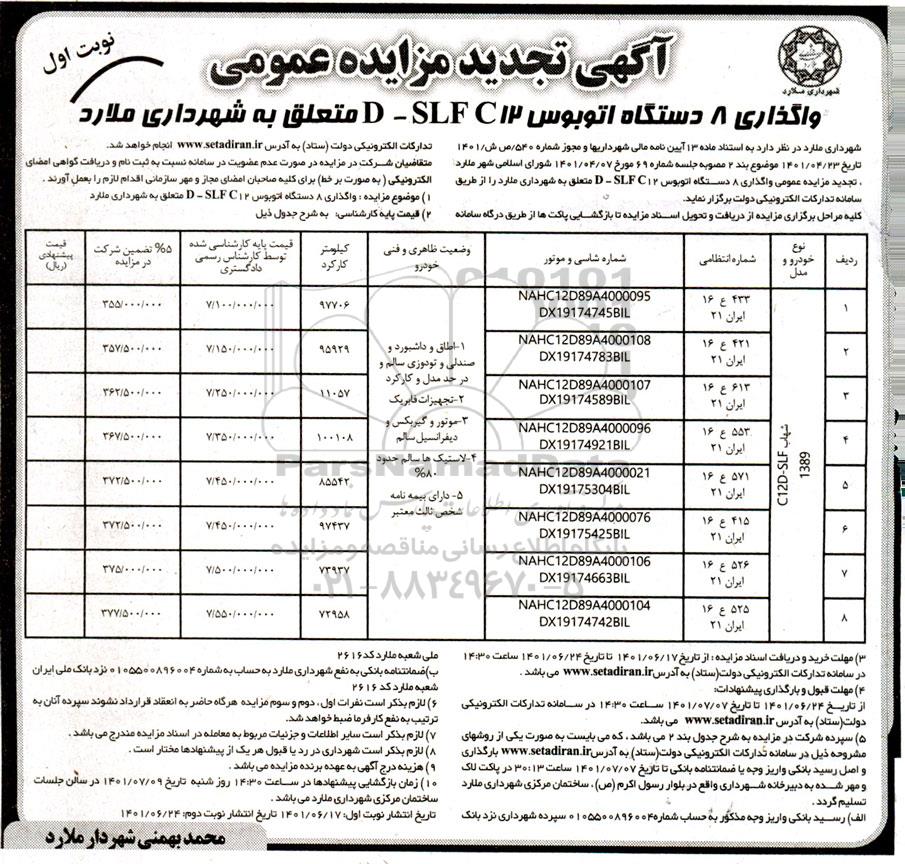 نوبت اول
شهرداری ملارد
آگهی تجدید مزایده عمومی
واگذاری ۸ دستگاه اتوبوس D - SLF C۱۲ متعلق به شهرداری ملارد
شهرداری ملارد در نظر دارد به استناد ماده ۱۳ آیین نامه مالی شهرداریها و مجوز شماره ۵۴۰/ص ش/۱۴۰۱
تاریخ ۱۴۰۱/۰۴/۲۳ موضوع بند ۲ مصوبه جلسه شماره ۶۹ مورخ ۱۴۰۱/۰۴/۰۷ شورای اسلامی شهر ملارد
، تجدید مزایده عمومی واگذاری ۸ دستگاه اتوبوس D - SLF C۱۲ متعلق به شهرداری ملارد را از طریق
سامانه تدارکات الکترونیکی دولت برگزار نماید.
کلیه مراحل برگزاری مزایده از دریافت و تحویل اسناد مزایده تا بازگشایی پاکت ها از طریق درگاه سامانه
تدارکات الکترونیکی دولت (ستاد) به آدرس www.setadiran.ir انجام خواهد شد.
متقاضیان شرکت در مزایده در صورت عدم عضویت در سامانه نسبت به ثبت نام و دریافت گواهی امضای
الکترونیکی ( به صورت بر خط) برای کلیه صاحبان امضای مجاز و مهر سازمانی اقدام لازم را بعمل آورند .
۱) موضوع مزایده : واگذاری ۸ دستگاه اتوبوس D - SLF C۱۲ متعلق به شهرداری ملارد
۲) قیمت پایه کارشناسی: به شرح جدول ذیل
ردیف | نوع خودرو و مدل | شماره انتظامی | شماره شاسی و موتور | وضعیت ظاهری و فنی خودرو | کیلومتر کارکرد | قیمت پایه کارشناسی شده توسط کارشناس رسمی دادگستری | ۵% تضمین شرکت در مزایده | قیمت پیشنهادی (ریال)
شهاب C12D-SLF 1389
۱ | ۴۳۳ ع ۱۶ ایران ۲۱ | NAHC12D89A4000095 DX19174745BIL | ۹۷۷۰۶ | ۷/۱۰۰/۰۰۰/۰۰۰ | ۳۵۵/۰۰۰/۰۰۰
۲ | ۴۲۱ ع ۱۶ ایران ۲۱ | NAHC12D89A4000108 DX19174783BIL | ۹۵۹۲۹ | ۷/۱۵۰/۰۰۰/۰۰۰ | ۳۵۷/۵۰۰/۰۰۰
۳ | ۶۱۳ ع ۱۶ ایران ۲۱ | NAHC12D89A4000107 DX19174589BIL | ۱۱۰۵۷ | ۷/۲۵۰/۰۰۰/۰۰۰ | ۳۶۲/۵۰۰/۰۰۰
۴ | ۵۵۳ ع ۱۶ ایران ۲۱ | NAHC12D89A4000096 DX19174921BIL | ۱۰۰۱۰۸ | ۷/۳۵۰/۰۰۰/۰۰۰ | ۳۶۷/۵۰۰/۰۰۰
۵ | ۵۷۱ ع ۱۶ ایران ۲۱ | NAHC12D89A4000021 DX19175304BIL | ۸۵۵۴۲ | ۷/۴۵۰/۰۰۰/۰۰۰ | ۳۷۲/۵۰۰/۰۰۰
۶ | ۴۱۵ ع ۱۶ ایران ۲۱ | NAHC12D89A4000076 DX19175425BIL | ۹۷۴۳۷ | ۷/۴۵۰/۰۰۰/۰۰۰ | ۳۷۲/۵۰۰/۰۰۰
۷ | ۵۲۶ ع ۱۶ ایران ۲۱ | NAHC12D89A4000106 DX19174663BIL | ۷۳۹۳۷ | ۷/۵۰۰/۰۰۰/۰۰۰ | ۳۷۵/۰۰۰/۰۰۰
۸ | ۵۲۵ ع ۱۶ ایران ۲۱ | NAHC12D89A4000104 DX19174742BIL | ۷۲۹۵۸ | ۷/۵۵۰/۰۰۰/۰۰۰ | ۳۷۷/۵۰۰/۰۰۰
۱-اطاق و داشبورد و
صندلی و تودوزی سالم و
در حد مدل و کارکرد
۲-تجهیزات فابریک
۳-موتور و گیربکس و
دیفرانسیل سالم
۴-لاستیک ها سالم حدود
۸۰%
۵- دارای بیمه نامه
شخص ثالث معتبر
ParsNamadData
پایگاه اطلاع رسانی مناقصه و مزایده
۰۲۱-۸۸۳۴۹۶۷۰-۵
۳) مهلت خرید و دریافت اسناد مزایده : از تاریخ ۱۴۰۱/۰۶/۱۷ تا تاریخ ۱۴۰۱/۰۶/۲۴ ساعت ۱۴:۳۰
در سامانه تدارکات الکترونیکی دولت(ستاد) به آدرس www.setadiran.ir می باشد .
۴) مهلت قبول و بارگذاری پیشنهادات:
از تاریخ ۱۴۰۱/۰۶/۲۴ تا تاریخ ۱۴۰۱/۰۷/۰۷ ساعت ۱۴:۳۰ در سامانه تدارکات الکترونیکی
دولت(ستاد) به آدرس www.setadiran.ir می باشد.
۵) سپرده شرکت در مزایده به شرح جدول بند ۲ می باشد ، که می بایست به صورت یکی از روشهای
مشروحه ذیل در سامانه تدارکات الکترونیکی دولت(ستاد) به آدرس www.setadiran.ir بارگذاری
و اصل رسید بانکی واریز وجه یا ضمانتنامه بانکی تا تاریخ ۱۴۰۱/۰۷/۰۷ ساعت ۱۳:۳۰ در پاکت لاک
و مهر شده به دبیرخانه شهرداری واقع در بلوار رسول اکرم (ص) ، ساختمان مرکزی شهرداری ملارد
تسلیم گردد .
الف) رسید بانکی واریز وجه مذکور به حساب شماره ۰۱۰۵۵۰۰۸۹۶۰۰۴ سپرده شهرداری نزد بانک
ملی شعبه ملارد کد۲۶۱۶
ب)ضمانتنامه بانکی به نفع شهرداری ملارد به حساب به شماره ۰۱۰۵۵۰۰۸۹۶۰۰۴ نزد بانک ملی ایران
شعبه ملارد کد ۲۶۱۶
۶) لازم بذکر است نفرات اول ، دوم و سوم مزایده هرگاه حاضر به انعقاد قرارداد نشوند سپرده آنان به
ترتیب به نفع کارفرما ضبط خواهد شد.
۷) لازم بذکر است سایر اطلاعات و جزئیات مربوط به معامله در اسناد مزایده مندرج می باشد .
۸) لازم بذکر است شهرداری در رد یا قبول هر یک از پیشنهادها مختار است .
۹) هزینه درج آگهی به عهده برنده مزایده می باشد .
۱۰) زمان بازگشایی پیشنهادها در ساعت ۱۴:۳۰ روز شنبه تاریخ ۱۴۰۱/۰۷/۰۹ در سالن جلسات
ساختمان مرکزی شهرداری ملارد می باشد .
تاریخ انتشار نوبت اول: ۱۴۰۱/۰۶/۱۷ تاریخ انتشار نوبت دوم: ۱۴۰۱/۰۶/۲۴
محمد بهمنی شهردار ملارد